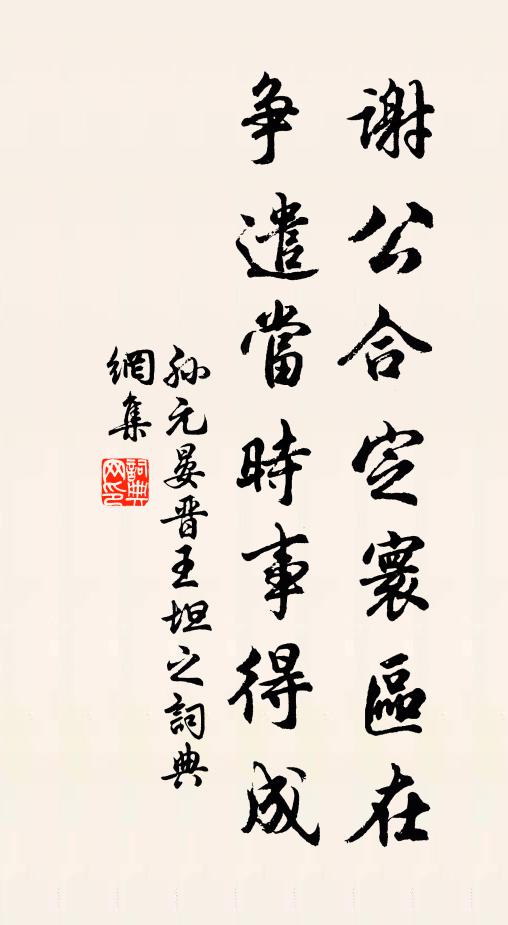 謝公合定寰區在
爭遣當時事得成
孫元晏晉王坦之詞典
網集
詞典
网印